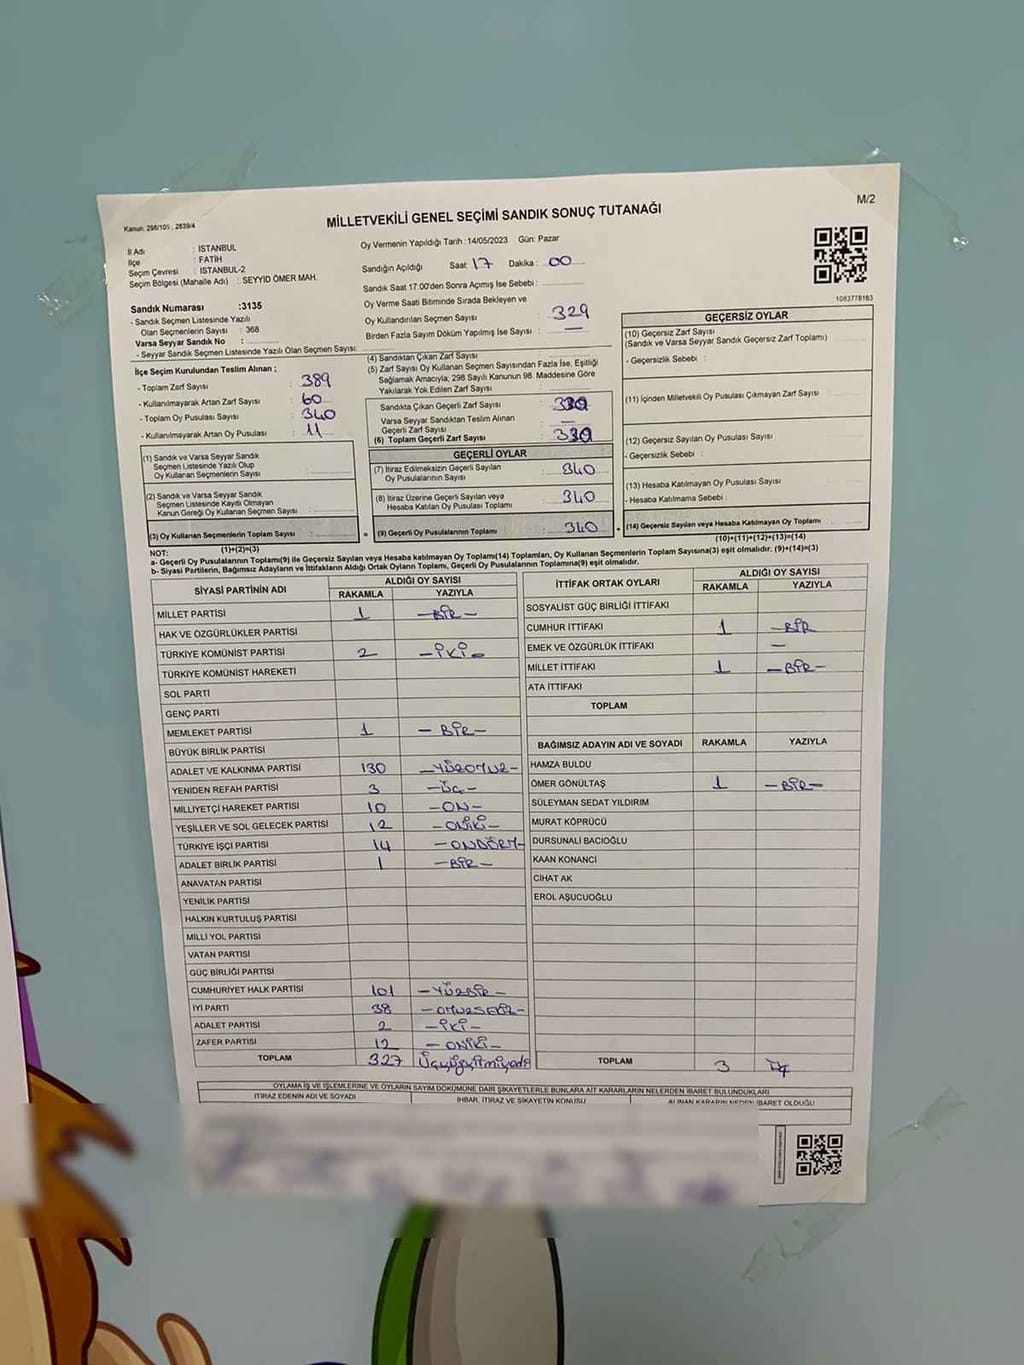 M/2
Kanun: 298/105 , 2839/4
MİLLETVEKİLİ GENEL SEÇİMİ SANDIK SONUÇ TUTANAĞI
İl Adı : İSTANBUL
İlçe : FATİH
Seçim Çevresi : İSTANBUL-2
Seçim Bölgesi (Mahalle Adı) : SEYYİD ÖMER MAH.
Oy Vermenin Yapıldığı Tarih :14/05/2023 Gün: Pazar
Sandığın Açıldığı Saat 17 Dakika : 00
Sandık Saat 17.00'den Sonra Açımış İse Sebebi :
Oy Verme Saati Bitiminde Sırada Bekleyen ve
Oy Kullandırılan Seçmen Sayısı : 329
Birden Fazla Sayım Döküm Yapılmış İse Sayısı : —
1083778163
Sandık Numarası :3135
- Sandık Seçmen Listesinde Yazılı
Olan Seçmenlerin Sayısı : 368
Varsa Seyyar Sandık No :
- Seyyar Sandık Seçmen Listesinde Yazılı Olan Seçmen Sayısı:
İlçe Seçim Kurulundan Teslim Alınan ;
- Toplam Zarf Sayısı : 389
- Kullanılmayarak Artan Zarf Sayısı : 60
- Toplam Oy Pusulası Sayısı : 340
- Kullanılmayarak Artan Oy Pusulası : 11
(1) Sandık ve Varsa Seyyar Sandık
Seçmen Listesinde Yazılı Olup
Oy Kullanan Seçmenlerin Sayısı :
(2) Sandık ve Varsa Seyyar Sandık
Seçmen Listesinde Kayıtlı Olmayan
Kanun Gereği Oy Kullanan Seçmen Sayısı :
(3) Oy Kullanan Seçmenlerin Toplam Sayısı :
(1)+(2)=(3)
(4) Sandıktan Çıkan Zarf Sayısı :
(5) Zarf Sayısı Oy Kullanan Seçmen Sayısından Fazla İse, Eşitliği
Sağlamak Amacıyla, 298 Sayılı Kanunun 98. Maddesine Göre
Yakılarak Yok Edilen Zarf Sayısı :
Sandıkta Çıkan Geçerli Zarf Sayısı :
Varsa Seyyar Sandıktan Teslim Alınan
Geçerli Zarf Sayısı : —
(6) Toplam Geçerli Zarf Sayısı :
GEÇERLİ OYLAR
(7) İtiraz Edilmeksizin Geçerli Sayılan
Oy Pusulalarının Sayısı : 340
(8) İtiraz Üzerine Geçerli Sayılan veya
Hesaba Katılan Oy Pusulası Toplamı : 340
= (9) Geçerli Oy Pusulalarının Toplamı : 340 +
GEÇERSİZ OYLAR
(10) Geçersiz Zarf Sayısı
(Sandık ve Varsa Seyyar Sandık Geçersiz Zarf Toplamı) :
- Geçersizlik Sebebi :
(11) İçinden Milletvekili Oy Pusulası Çıkmayan Zarf Sayısı :
(12) Geçersiz Sayılan Oy Pusulası Sayısı :
- Geçersizlik Sebebi :
(13) Hesaba Katılmayan Oy Pusulası Sayısı :
- Hesaba Katılmama Sebebi :
(14) Geçersiz Sayılan veya Hesaba Katılmayan Oy Toplamı :
(10)+(11)+(12)+(13)=(14)
NOT:
a- Geçerli Oy Pusulalarının Toplamı(9) ile Geçersiz Sayılan veya Hesaba katılmayan Oy Toplamı(14) Toplamları, Oy Kullanan Seçmenlerin Toplam Sayısına(3) eşit olmalıdır. (9)+(14)=(3)
b- Siyasi Partilerin, Bağımsız Adayların ve İttifakların Aldığı Ortak Oyların Toplamı, Geçerli Oy Pusulalarının Toplamına(9) eşit olmalıdır.
SİYASİ PARTİNİN ADI ALDIĞI OY SAYISI
RAKAMLA YAZIYLA
MİLLET PARTİSİ 1 — BİR —
HAK VE ÖZGÜRLÜKLER PARTİSİ
TÜRKİYE KOMÜNİST PARTİSİ 2 — İKİ —
TÜRKİYE KOMÜNİST HAREKETİ
SOL PARTİ
GENÇ PARTİ
MEMLEKET PARTİSİ 1 — BİR —
BÜYÜK BİRLİK PARTİSİ
ADALET VE KALKINMA PARTİSİ 130 — YÜZOTUZ —
YENİDEN REFAH PARTİSİ 3 — ÜÇ —
MİLLİYETÇİ HAREKET PARTİSİ 10 — ON —
YEŞİLLER VE SOL GELECEK PARTİSİ 12 — ONİKİ —
TÜRKİYE İŞÇİ PARTİSİ 14 — ONDÖRT —
ADALET BİRLİK PARTİSİ 1 — BİR —
ANAVATAN PARTİSİ
YENİLİK PARTİSİ
HALKIN KURTULUŞ PARTİSİ
MİLLİ YOL PARTİSİ
VATAN PARTİSİ
GÜÇ BİRLİĞİ PARTİSİ
CUMHURİYET HALK PARTİSİ 101 — YÜZBİR —
İYİ PARTİ 38 — OTUZSEKİZ —
ADALET PARTİSİ 2 — İKİ —
ZAFER PARTİSİ 12 — ONİKİ —
TOPLAM 327 Üçyüzyirmiyedi
İTTİFAK ORTAK OYLARI ALDIĞI OY SAYISI
RAKAMLA YAZIYLA
SOSYALİST GÜÇ BİRLİĞİ İTTİFAKI
CUMHUR İTTİFAKI 1 — BİR
EMEK VE ÖZGÜRLÜK İTTİFAKI —
MİLLET İTTİFAKI 1 — BİR —
ATA İTTİFAKI
TOPLAM
BAĞIMSIZ ADAYIN ADI VE SOYADI RAKAMLA YAZIYLA
HAMZA BULDU
ÖMER GÖNÜLTAŞ 1 — BİR —
SÜLEYMAN SEDAT YILDIRIM
MURAT KÖPRÜCÜ
DURSUNALİ BACIOĞLU
KAAN KONANCI
CİHAT AK
EROL AŞUCUOĞLU
TOPLAM 3
OYLAMA İŞ VE İŞLEMLERİNE VE OYLARIN SAYIM DÖKÜMÜNE DAİR ŞİKAYETLERLE BUNLARA AİT KARARLARIN NELERDEN İBARET BULUNDUKLARI
İTİRAZ EDENİN ADI VE SOYADI İHBAR, İTİRAZ VE ŞİKAYETİN KONUSU ALINAN KARARIN NEDEN İBARET OLDUĞU